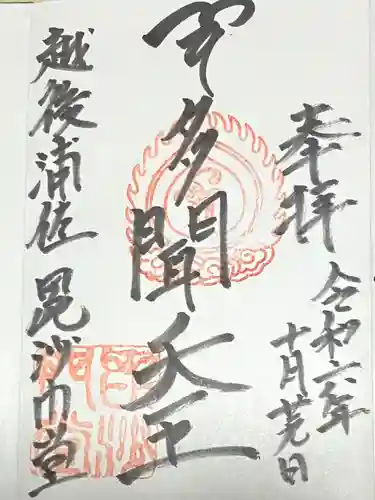 奉拝
令和六年
十月廿九日
多聞天王
越後浦佐 毘沙門堂